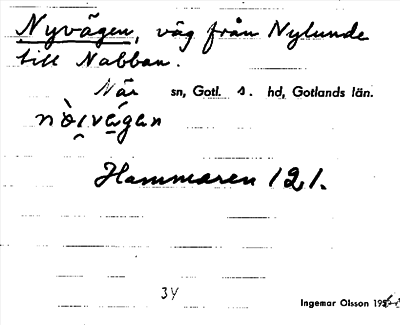 Nyvägen, väg från Nylunde
till Nabban.
När sn, Gotl. s. hd, Gotlands län.
nòi̯vá̯gən
Hammaren 121.
34
Ingemar Olsson